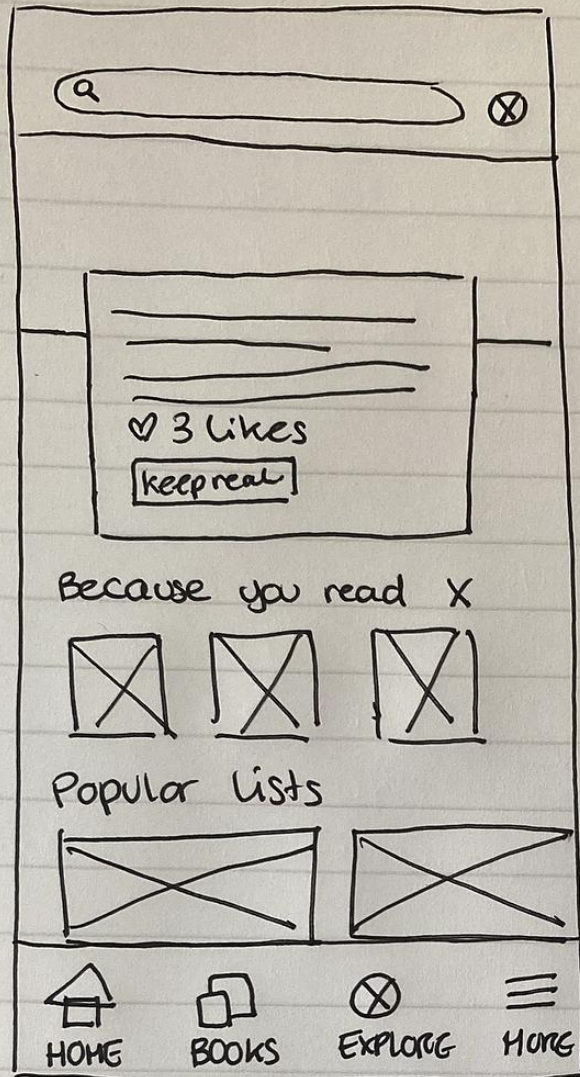 3 Likes
keepreal
Because you read X
Popular Lists
HOME BOOKS EXPLORE MORE